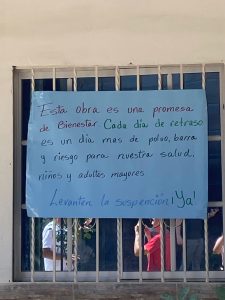 Esta obra es una promesa
de Bienestar. Cada día de retraso
es un día mas de polvo, barro
y riesgo para nuestra salud,
niños y adultos mayores
Levanten la suspención ¡Ya!